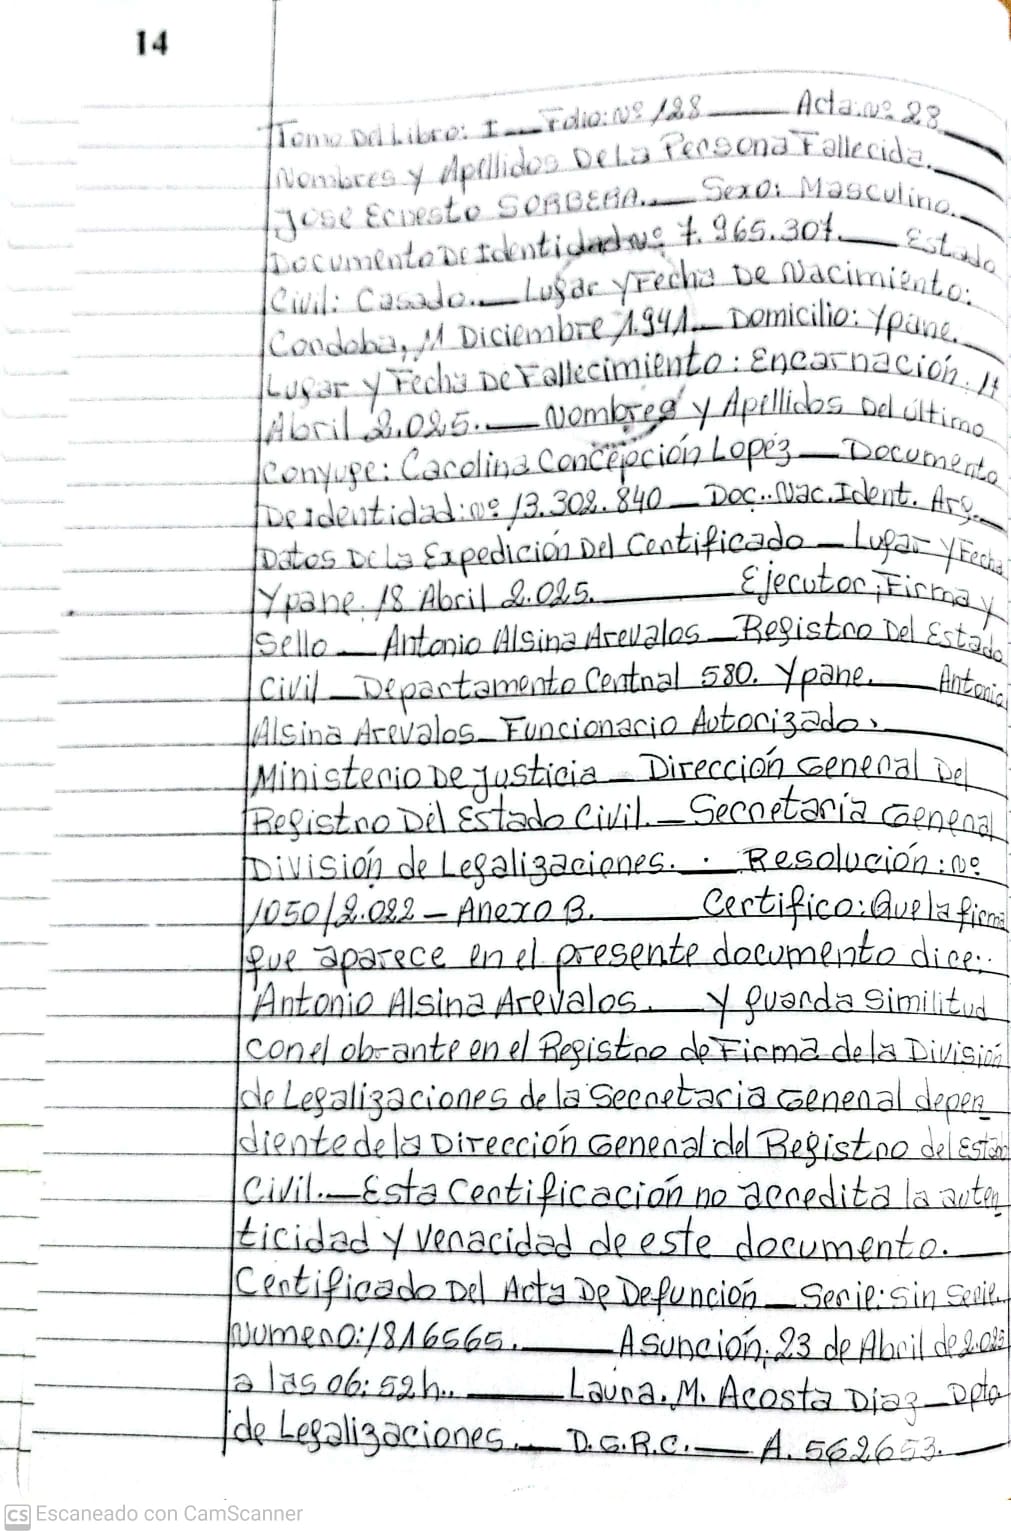 14
Tomo Del Libro: I __ Folio: Nº 128 ___ Acta: Nº 28 __
Nombres y Apellidos De La Persona Fallecida. __
José Ernesto SORBERA. __ Sexo: Masculino. __
Documento De Identidad Nº 7.965.307. __ Estado
Civil: Casado. __ Lugar y Fecha De Nacimiento:
Cordoba, 11 Diciembre 1.941 __ Domicilio: Ypane. __
Lugar y Fecha De Fallecimiento: Encarnación. 17
Abril 2.025. __ Nombres y Apellidos Del último
Conyuge: Carolina Concepción Lopéz __ Documento
De Identidad: Nº 13.302.840 __ Doc.. Nac. Ident. Arg. __
Datos De La Expedición Del Certificado __ Lugar y Fecha
Ypane. 18 Abril 2.025. ______ Ejecutor, Firma y
Sello __ Antonio Alsina Arevalos __ Registro Del Estado
Civil __ Departamento Central 580. Ypane. __ Antonio
Alsina Arevalos __ Funcionario Autorizado. ____
Ministerio De Justicia __ Dirección General Del
Registro Del Estado Civil. __ Secretaría General
División de Legalizaciones. . __ Resolución: Nº
1050/2.022 - Anexo B. ____ Certifico: Que la firma
que aparece en el presente documento dice:.
Antonio Alsina Arevalos. __ y guarda similitud
con el obrante en el Registro de Firma de la División
de Legalizaciones de la Secretaria General depen
diente de la Dirección General del Registro del Estado
Civil. __ Esta Certificación no acredita la auten
ticidad y veracidad de este documento. __
Certificado Del Acta De Defunción __ Serie: Sin Serie.
Numero: 1816565. ____ Asunción, 23 de Abril de 2.025
a las 06:52h.. ____ Laura. M. Acosta Diaz __ Dpto
de Legalizaciones. __ D.G.R.C. __ A. 562653. __
CS Escaneado con CamScanner